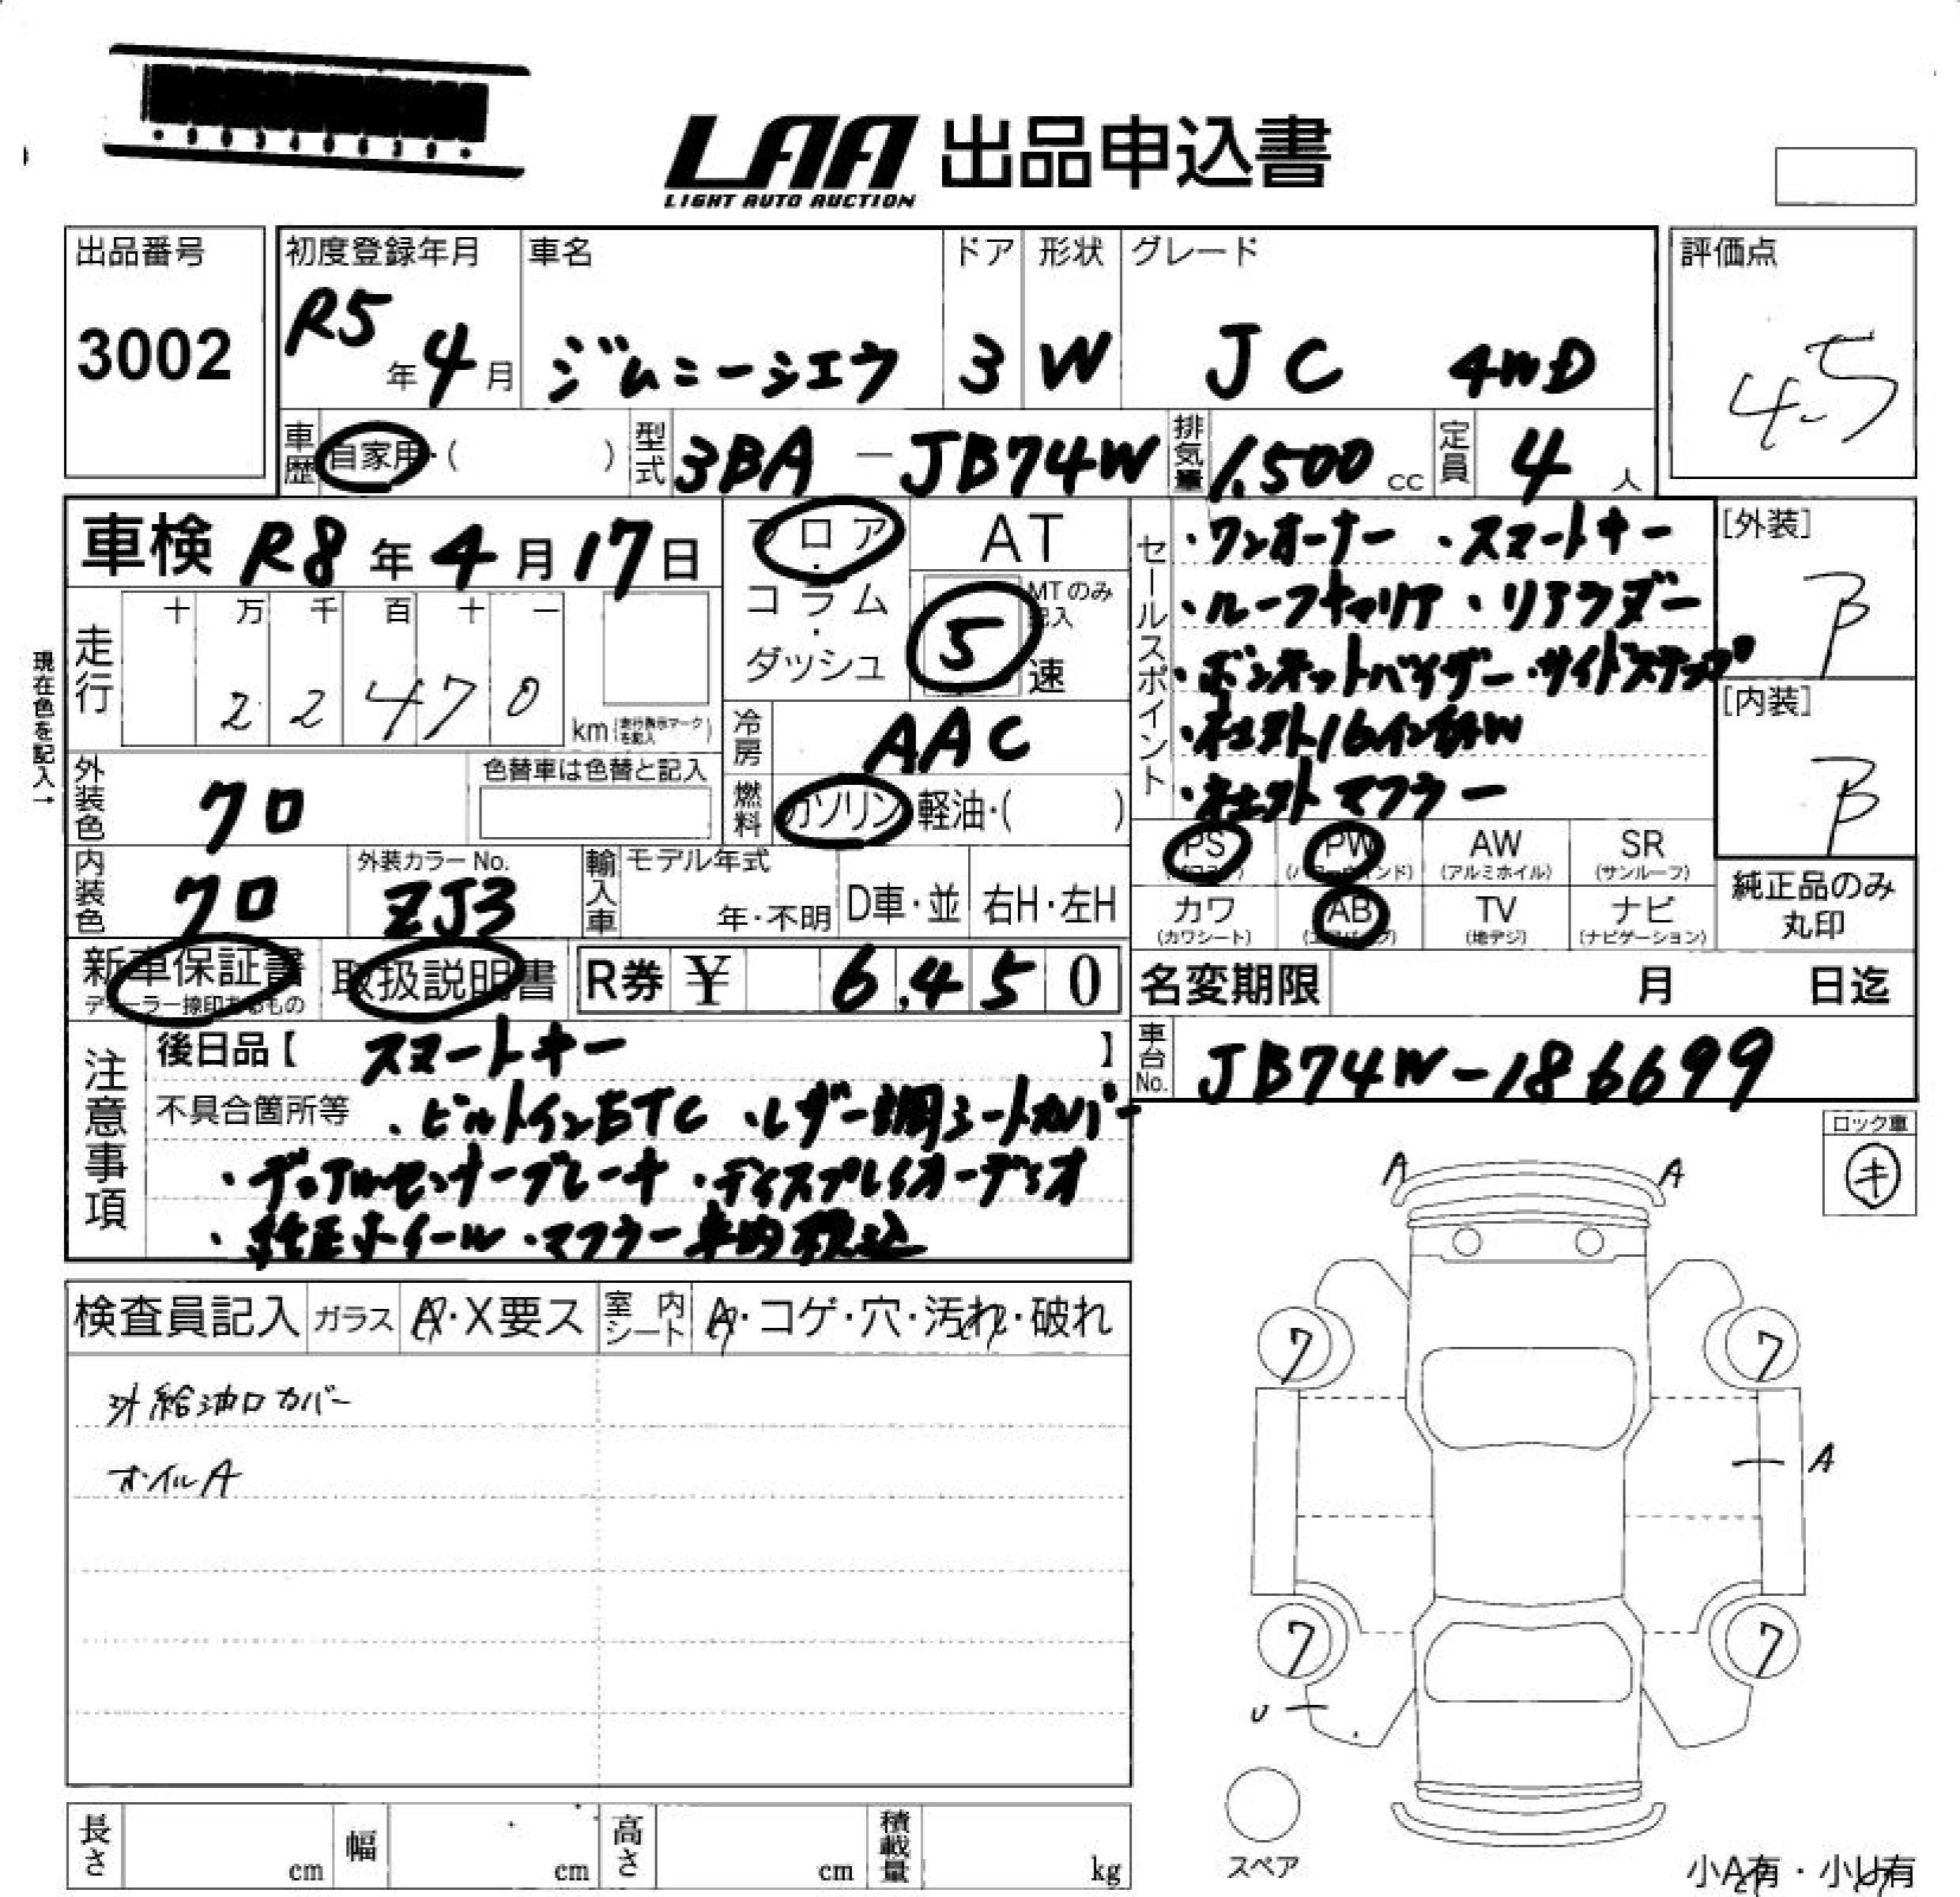 LAA 出品申込書
LIGHT AUTO AUCTION
出品番号
3002
初度登録年月
R5年4月
車名
ジムニーシエラ
ドア
3
形状
W
グレード
JC 4WD
評価点
4.5
車歴 自家用・( )
型式 3BA-JB74W
排気量 1,500 cc
定員 4人
車検 R8年4月17日
フロア・コラム・ダッシュ
AT
MTのみ記入
5速
セールスポイント
・ワンオーナー ・スマートキー
・ルーフキャリア ・リアラダー
・ボンネットバイザー ・サイドステップ
・社外16インチAW
・社外マフラー
[外装]
B
[内装]
B
現在色を記入→
走行
十 万 千 百 十 一
2 2 4 7 0
km(走行表示マークを記入)
冷房 AAC
外装色 クロ
色替車は色替と記入
燃料 ガソリン・軽油・( )
内装色 クロ
外装カラーNo.
ZJ3
輸入車 モデル年式
年・不明 D車・並 右H・左H
PS PW AW (アルミホイル) SR (サンルーフ)
カワ (カワシート) AB TV (地デジ) ナビ (ナビゲーション)
純正品のみ丸印
新車保証書
取扱説明書
R券 ¥ 6,450
名変期限 月 日迄
注意事項
後日品【 スマートキー 】
車台No. JB74W-186699
不具合箇所等 ・ビルトインETC ・レザー調シートカバー
・デュアルセンサーブレーキ ・ディスプレイオーディオ
・純正ホイール・マフラー車内積込
ロック車
キ
検査員記入 ガラス A・X要ス 室内シート A・コゲ・穴・汚れ・破れ
外給油口カバー
オイルA
A A
7 7
A
7 7
U
スペア
長さ cm 幅 cm 高さ cm 積載量 kg
小A有・小U有